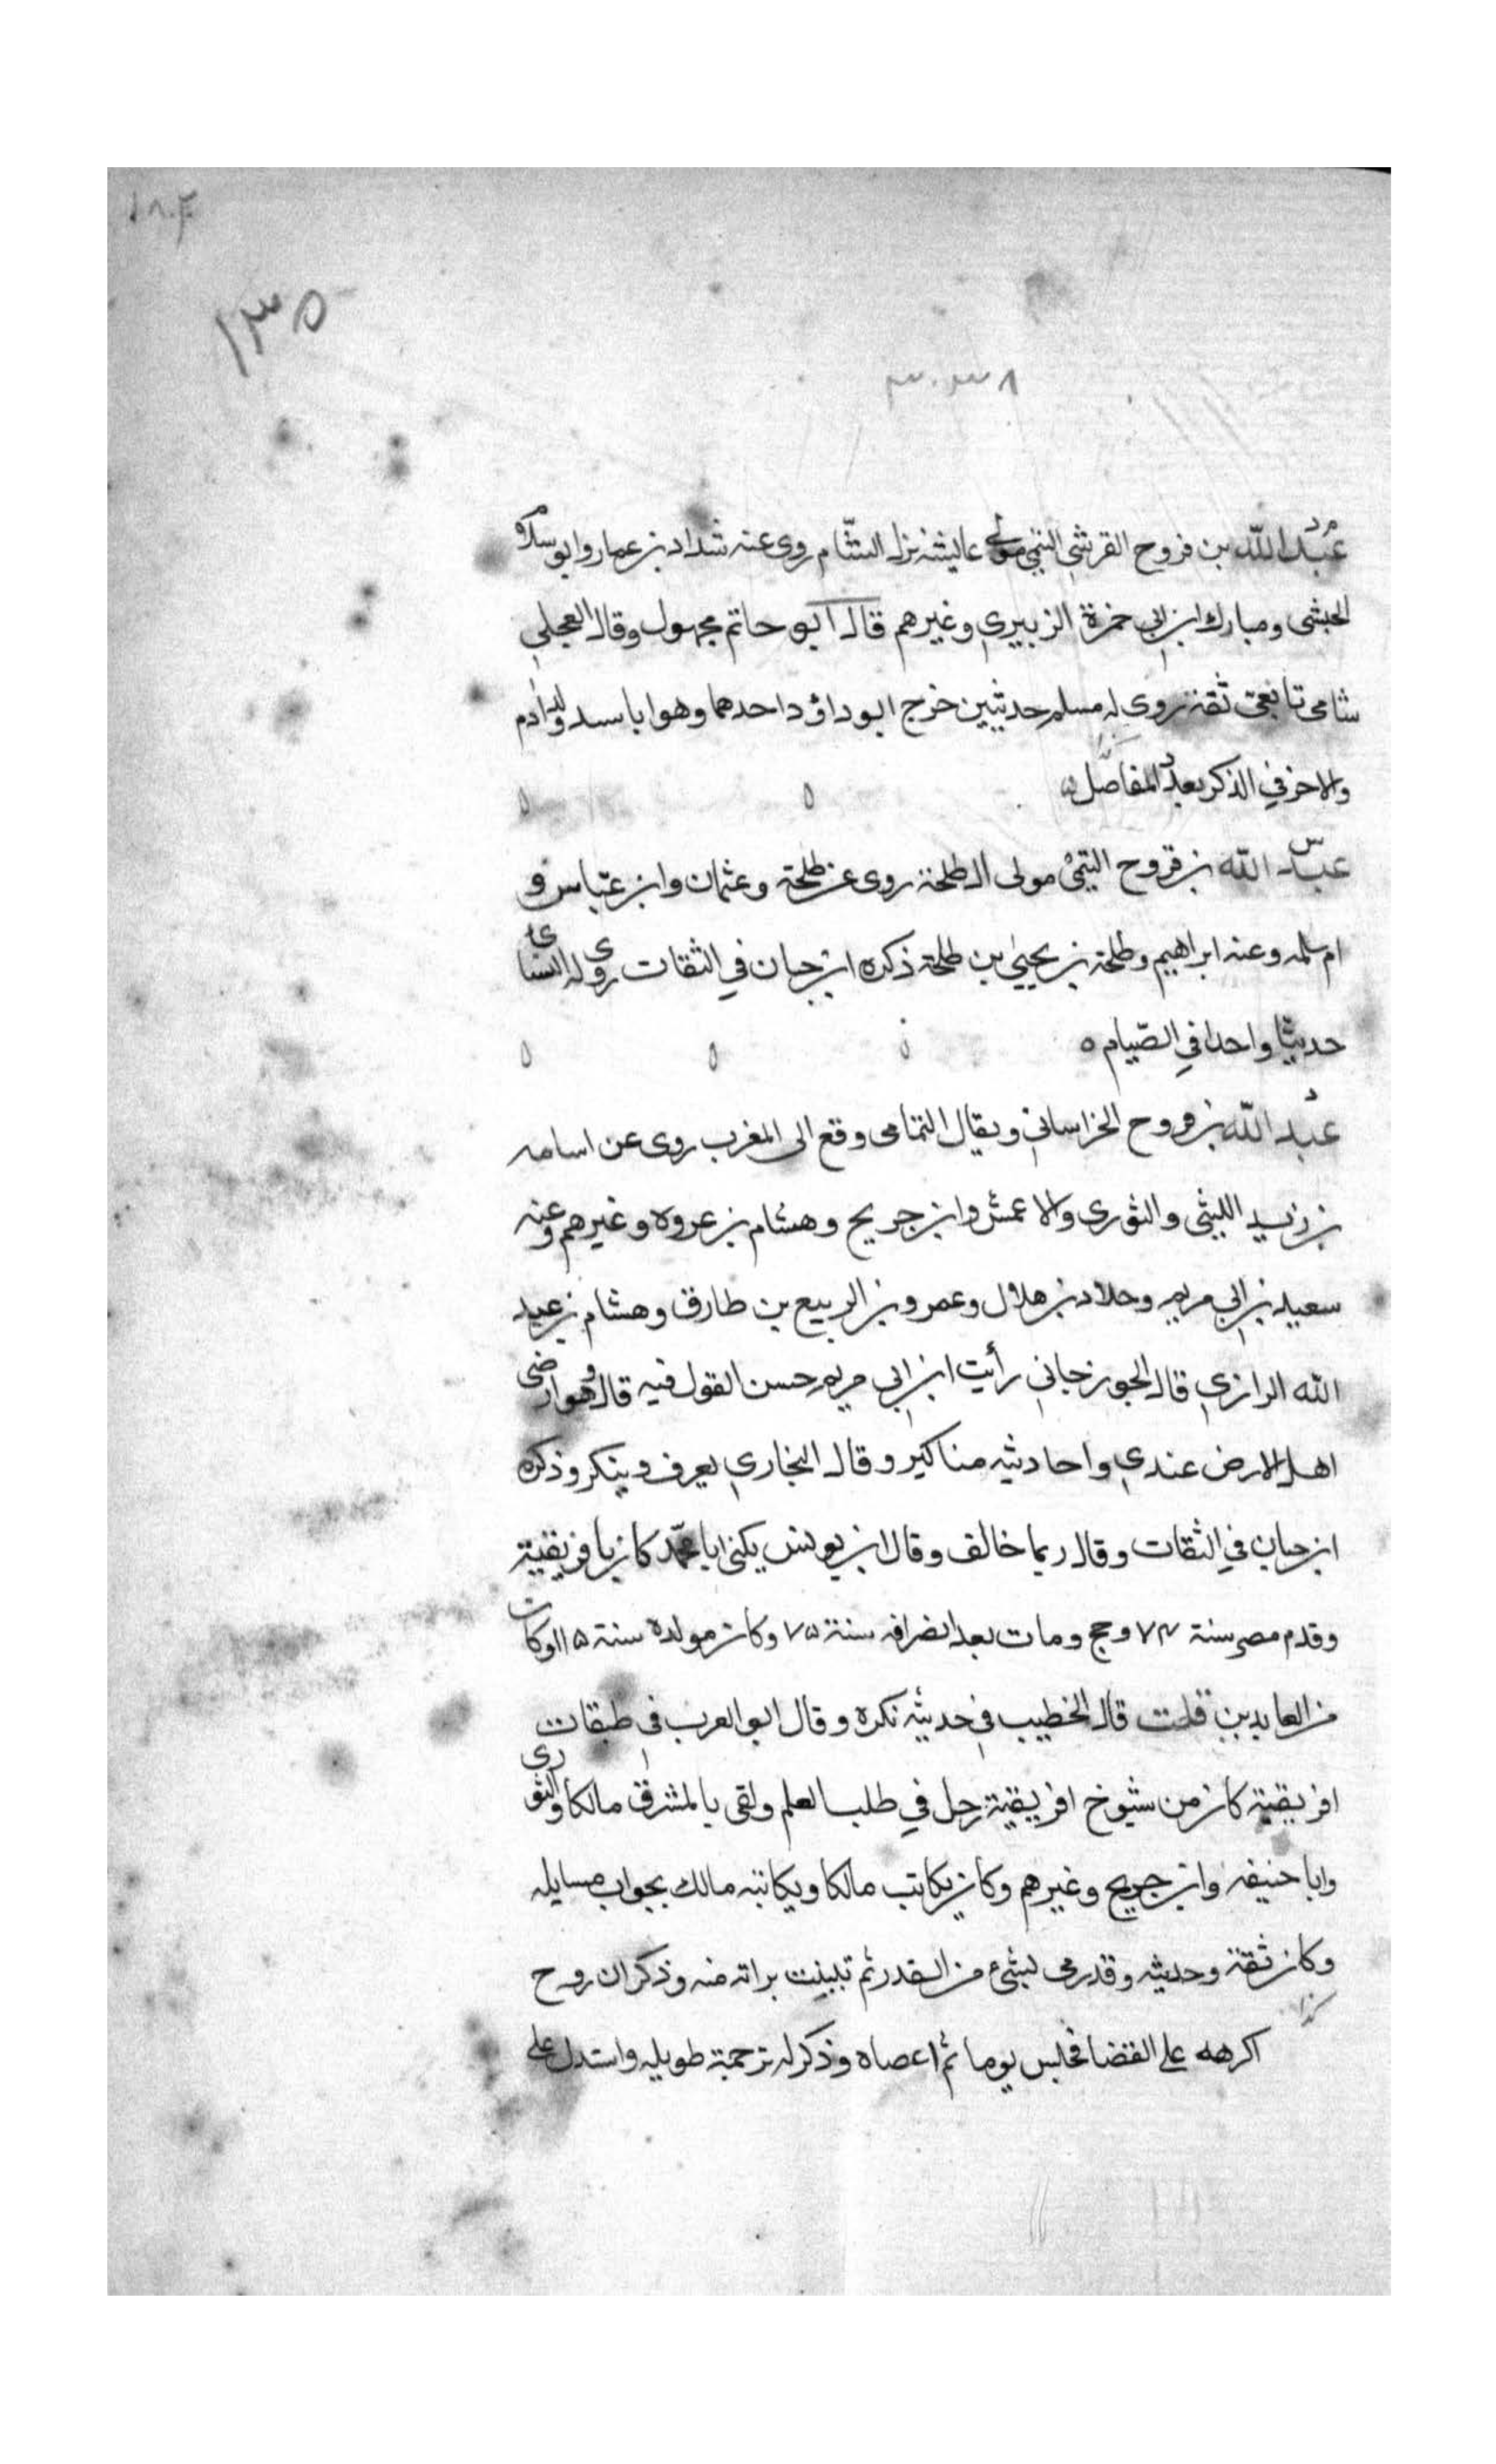 ١٨٠٤
١٣٥
٣٠٣٨
م د
عبد الله بن فروح القرشي التيمي مولى عايشة نزل الشام روى عنه شداد بن عمار وابو سلام
الحبشى ومبارك ابن ابي حمزة الزبيري وغيرهم قال ابو حاتم مجهول وقال العجلي
شامى تابعى ثقة روى له مسلم حديثين خرج ابو داؤد احدهما وهو انا سيد ولد ادم
والاخر في الذكر بعد المفاصل
س
عبد الله بن فروح التيمي مولى ال طلحة روى عن طلحة وعثمان وابن عباس و
ام سلمه وعنه ابراهيم وطلحة بن يحيى بن طلحة ذكره ابن حبان في الثقات روى له النساى
حديثا واحدا في الصيام ٥
د
عبد الله بن فروح الخراساني ويقال وقع الى المغرب روى عن اسامه
بن زيد الليثى والثورى والاعمش وابن جريح وهشام بن عروه وغيرهم وعنه
سعيد بن ابي مريم وخلاد بن هلال وعمرو بن الربيع بن طارق وهشام بن عبيد
الله الرازي قال الجوزجاني رأيت ابن ابي مريم حسن القول فيه قال وهو ارضى
اهل الارض عندي واحاديثه مناكير وقال البخاري يعرف وينكر وذكره
ابن حبان في الثقات وقال ربما خالف وقال ابن يونس يكنى ابا محمد كان بافريقية
وقدم مصر سنة ٧٤ وحج ومات بعد انصرافه سنة ٧٥ وكان مولده سنة ١١٥ وكان
من العابدين قلت قال الخطيب في حديثه نكرة وقال ابو العرب في طبقات
افريقية كان من شيوخ افريقية رحل في طلب العلم ولقى بالمشرق مالكا والثورى
وابا حنيفه وابن جريح وغيرهم وكان يكاتب مالكا ويكاتبه مالك بجواب مسايله
وكان ثقة وحديثه وقد رمى بشىء من القدر ثم تبينت براته منه وذكر ان روح
كذا
اكرهه على القضا فجلس يوما ثم اعصاه وذكر له ترجمة طويله واستدل على